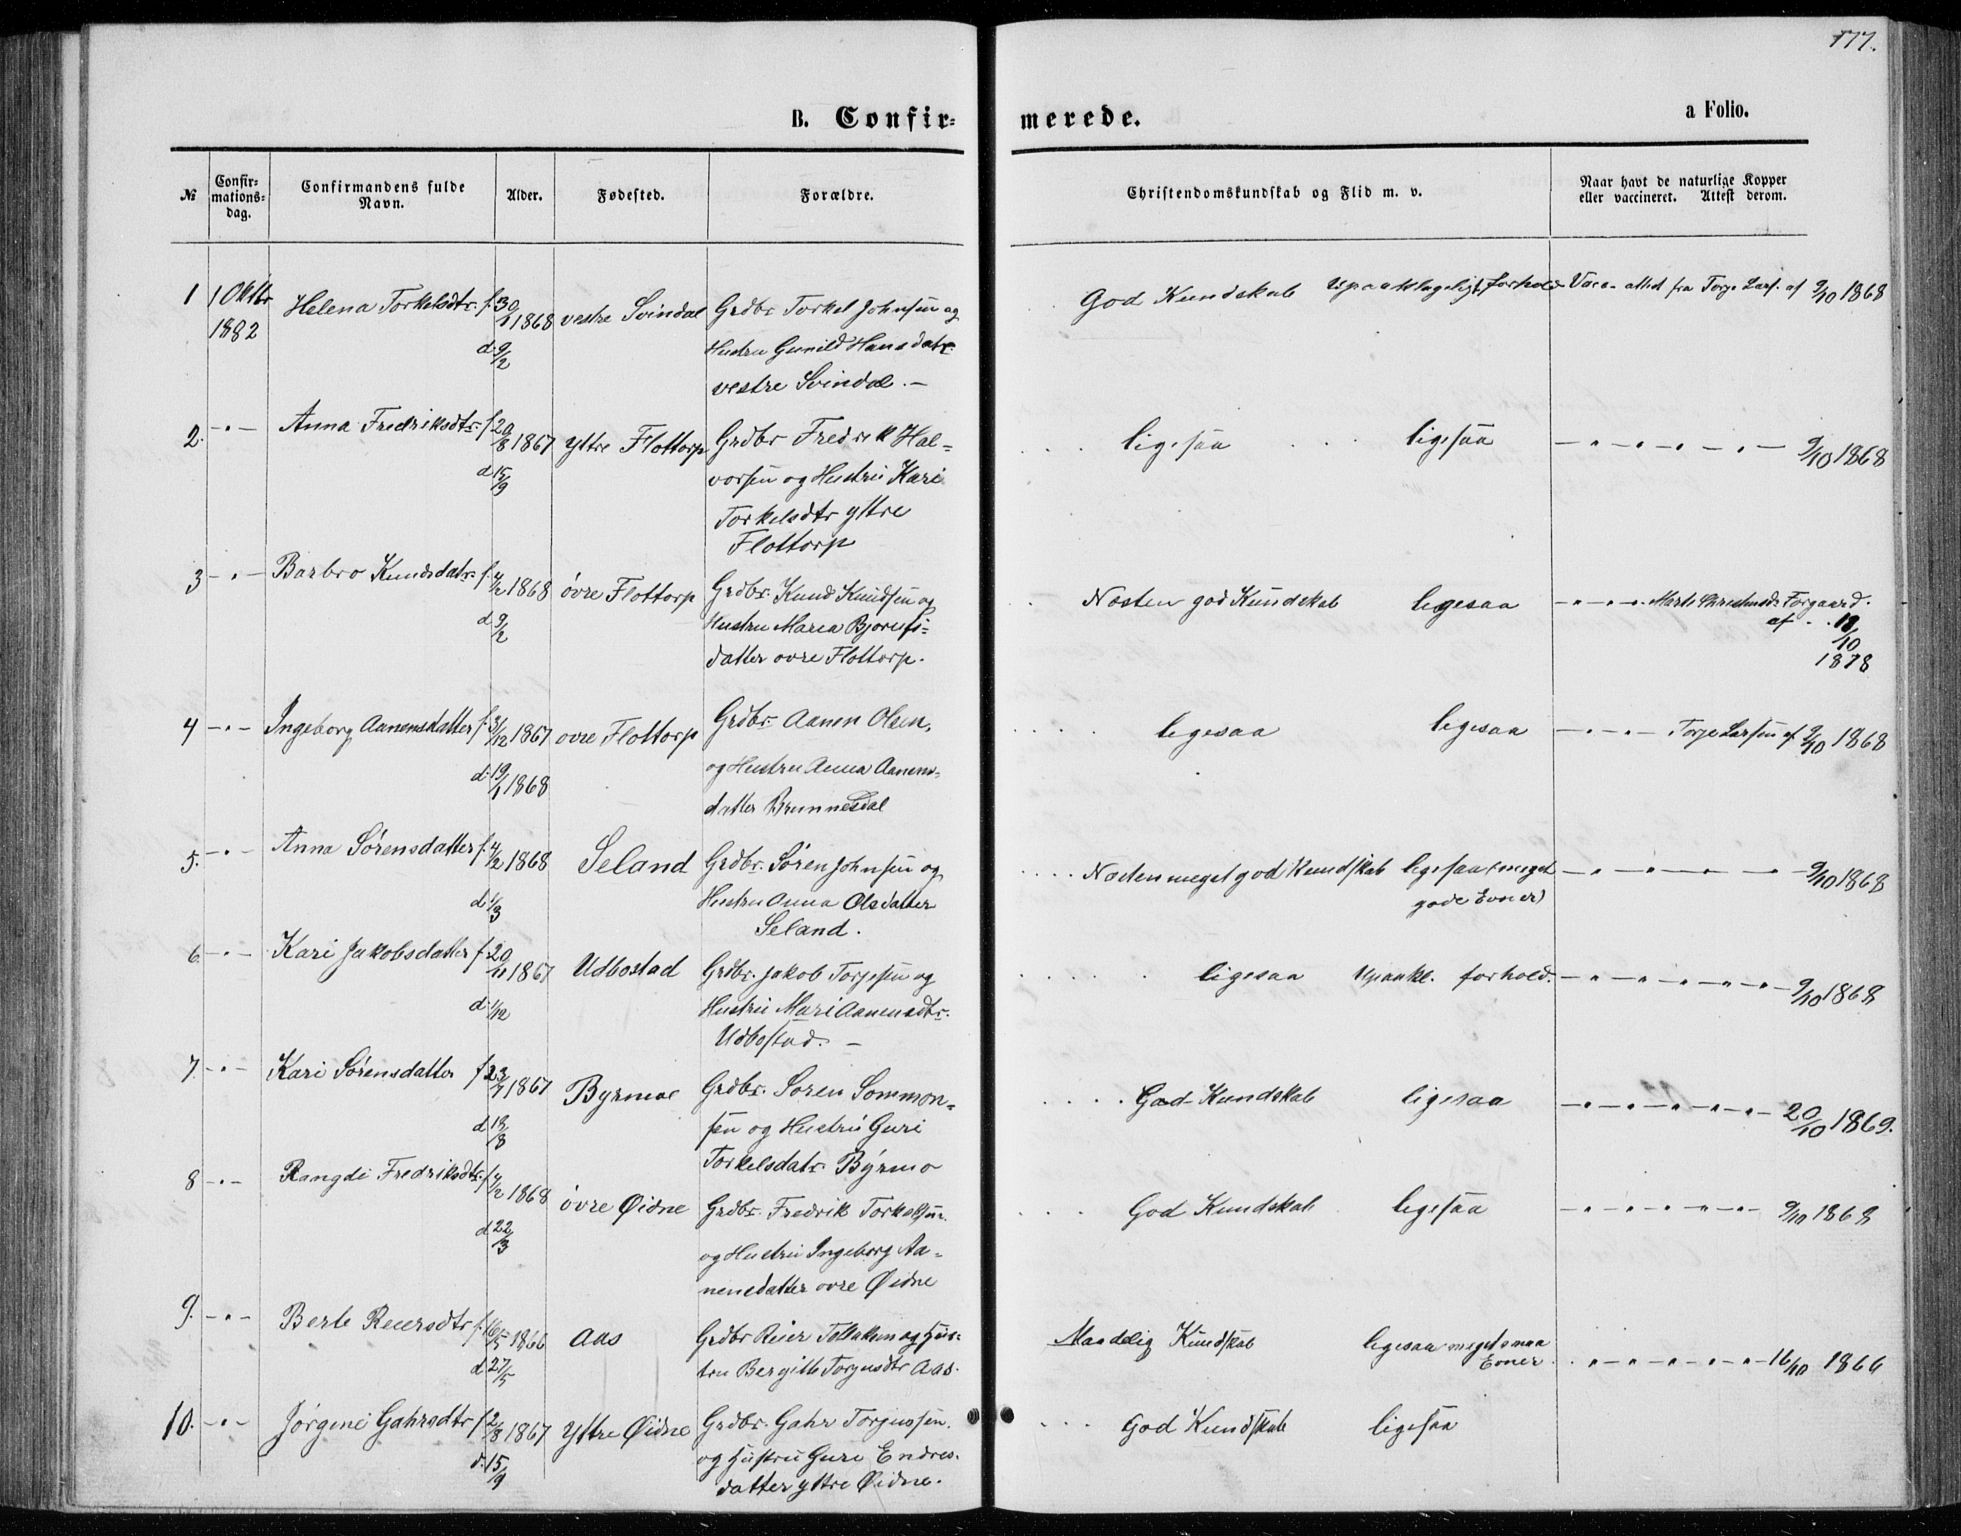 177.
B. Confir-
merede.
a Folio.
№
Confir-
mations-
dag.
Confirmandens fulde
Navn.
Alder.
Fødested.
Forældre.
Christendomskundskab og Flid m. v.
Naar havt de naturlige Kopper
eller vaccineret. Attest derom.
1 1 Oktbr 1882 Helena Torkelsdtr. f. 30/1 1868 vestre Svindal Grdbr Torkel Johnsen og God Kundskab Upaaklageligt forhold Vacc. attest fra Torje Lars. af 9/10 1868
d. 9/2 Hustru Gunild Hansdatr.
vestre Svindal. –
2. – " – Anna Fredriksdtr. f. 20/8 1867 Yttre Flottorp Grdbr Fredrik Hal- ligesaa ligesaa – " – " – " – " – 9/10 1868
d. 15/9 vorsen og Hustru Kari
Torkelsdtr yttre
Flottorp
3 – " – Barbro Knudsdatr. f. 4/2 1868 øvre Flottorp Grdbr. Knud Knudsen og Næsten god Kundskab ligesaa – " – " – " Marte Christensdr Forgaard.
d. 9/2 Hustru Maren Bjorns- af 18/10
datter ovre Flottorp. 1878
4 – " – Ingeborg Aanensdatter f. 3/12 1867 ovre Flottorp Grdbr. Aanen Olsen, ligesaa ligesaa – " – " – Torje Larsen af 9/10 1868
d. 19/1 1868 og Hustru Anna Aanens-
datter Brunnesdal
5. – " – Anna Sørensdatter f. 4/2 1868 Seland Grdbr. Søren Johnsen og Næsten meget god Kundskab ligesaa (meget – " – " – " – 9/10 1868
d. 1/3 Hustru Anna Olsdatter gode Evner)
Seland.
6. – " – Kari Jakobsdatter f. 20/11 1867 Udbostad Grdbr. Jakob Torjesen og ligesaa Upaakl. forhold. – " – " – " – " – 9/10 1868
d. 1/12 Hustru Mari Aanensdtr.
Udbostad. –
7. – " – Kari Sørensdatter f. 23/7 1867 Byrmoe Grdbr. Soren Sommon- God Kundskab ligesaa – " – " – " – " – 20/10 1869.
d. 18/8 sen og Hustru Guri
Torkelsdatr. Byrmo
8 – " – Rangdi Fredriksdtr. f. 4/2 1868 øvre Øidne Grdbr. Fredrik Torkelsen. God Kundskab ligesaa – " – " – " – " – 9/10 1868
d. 22/3 og Hustru Ingeborg Aa-
nensdatter ovre Øidne
9. – " – Berte Reiersdtr f. 16/5 1866 Aas Grdbr Reier Tellaksen og Hus- Maadelig Kundskab ligesaa meget smaa
d. 27/5 tru Bergitte Torjusdtr Aas. Evner. " – " – " – " – 16/10 1866
10. – " – Jørgine Gahrsdtr f. 2/8 1867 Yttre Øidne Grdbr. Gahr Torjussen. God Kundskab ligesaa
d. 15/9 og Hustru Guri Endres-
datter yttre Øidne.